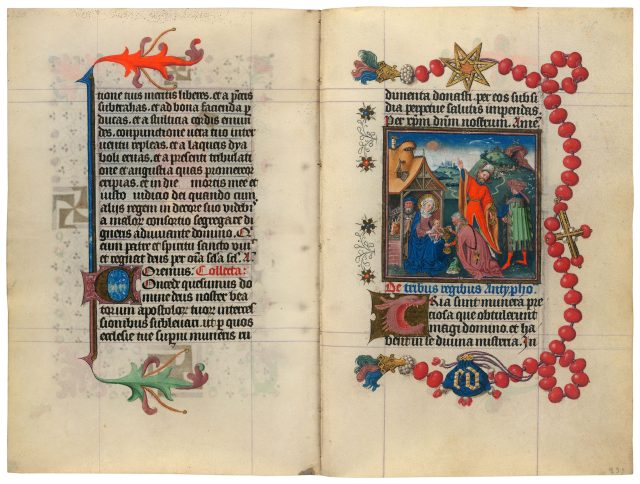 tione tuis meritis liberes. et a pctis
subtrahas. et ad bona facienda p
ducas. et a stulticia cordis emun
des. compunctione vera tuo inter
uentu repleas. et a laqueis dya
boli eruas. et a presenti tribulati
one et angustia quas promereor
eripias. et in die mortis mee et
iusto iudicio dei quando cum
alijs regem in decore suo videbi
a malor consortio segregare di
gneris adiuuante domino. Q
cum patre et spiritu sancto viui
et regnat deus per oia scla scl. A
Oremus: Collecta:
quesumus do
mine deus noster bea
torum apostolor tuor interces
sionibus subleuari. ut p quos
ecclesie tue superni muneris ru
dimenta donasti. per eos subsi
dia perpetue salutis impendas.
Per xpm dnm nostrum. Ame
De tribus regibus Antypho.
Tria sunt munera pre
ciosa que obtulerunt
magi domino. et ha
bent in se diuina misteria. In